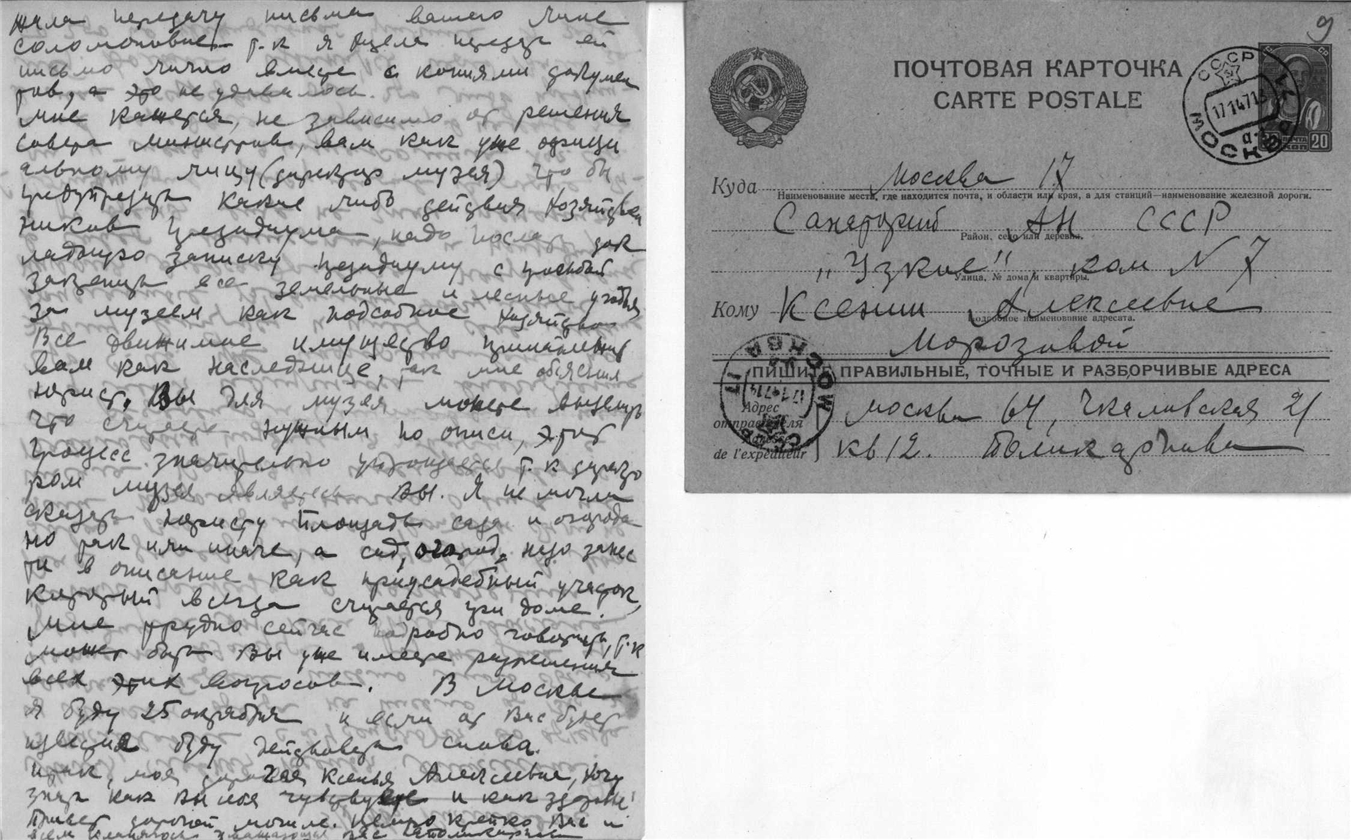 жала передачу письма вашего Лине
Соломоновне т.к я хотела передать ей
письмо лично вместе с копиями докумен
тов, а это не удавалось.
Мне кажется, не зависимо от решения
совета министров, вам как уже офици
альному лицу (директор музея) что бы
предупредить какие либо действия хозяйствен
ников президиума, надо послать док
ладную записку президиуму с просьбой
закрепить все земельные и лесные угодья
за музеем, как подсобное хозяйство
Все движимое имущество принадлежит
вам как наследнице, так мне объяснил
юрист, Вы для музея можете выделить
что считаете нужным по описи, этот
процесс значительно упрощается т.к директо
ром музея являетесь Вы. Я не могла
сказать юристу площадь сада и огорода
но так или иначе, а сад, огород, надо занес
ти в описание как приусадебный участок,
который всегда считается при доме.
Мне трудно сейчас подробно говорить, т.к
может быть Вы уже имеете разрешения
всех этих вопросов. В Москве
я буду 25 октября и если от Вас будет
известие буду действовать снова.
Итак, моя дорогая Ксенья Алексеевна, хочу
знать как вы себя чувствуете и как здоровье
Привет дорогой могиле. Целую крепко Вас и
всем кланяюсь Вас
9
ПОЧТОВАЯ КАРТОЧКА
CARTE POSTALE
СССР МОСКВА
17 1 47
20
Куда Москва 17
Наименование места, где находится почта, и области или края, а для станций—наименование железной дороги.
Санаторий АН СССР
Район, село или деревня.
„Узкое", ком N 7
Улица, № дома и квартиры.
Кому Ксении Алексеевне
Подробное наименование адресата.
Морозовой
МОСКВА 17
ПИШИТЕ ПРАВИЛЬНЫЕ, ТОЧНЫЕ И РАЗБОРЧИВЫЕ АДРЕСА
Адрес отправителя Москва 64, Чкаловская 21
de l'expéditeur кв 12. Поликарпова